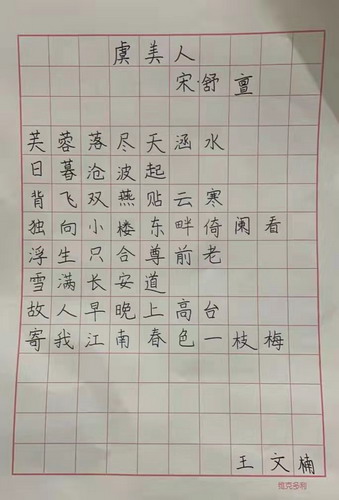 虞美人
宋·舒亶
芙蓉落尽天涵水
日暮沧波起
背飞双燕贴云寒
独向小楼东畔倚阑看
浮生只合尊前老
雪满长安道
故人早晚上高台
寄我江南春色一枝梅
王文楠
维克多利